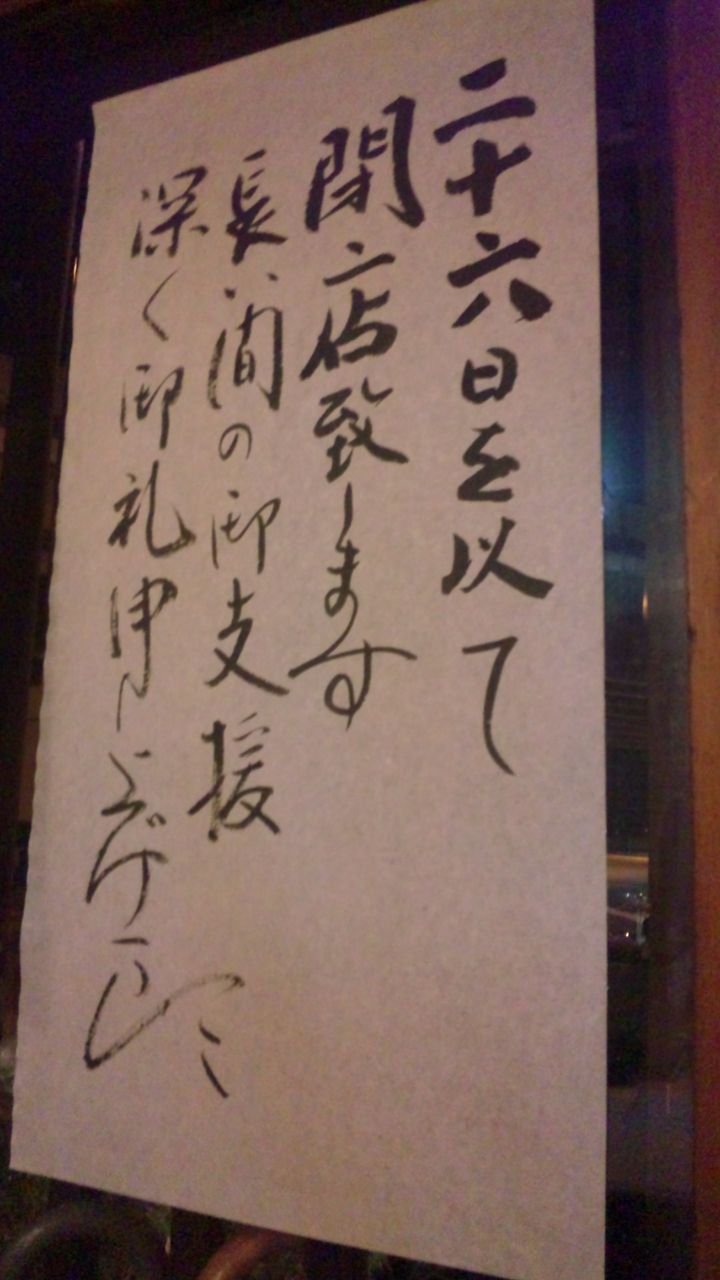 二十六日を以て
閉店致します
長い間の御支援
深く御礼申し上げます